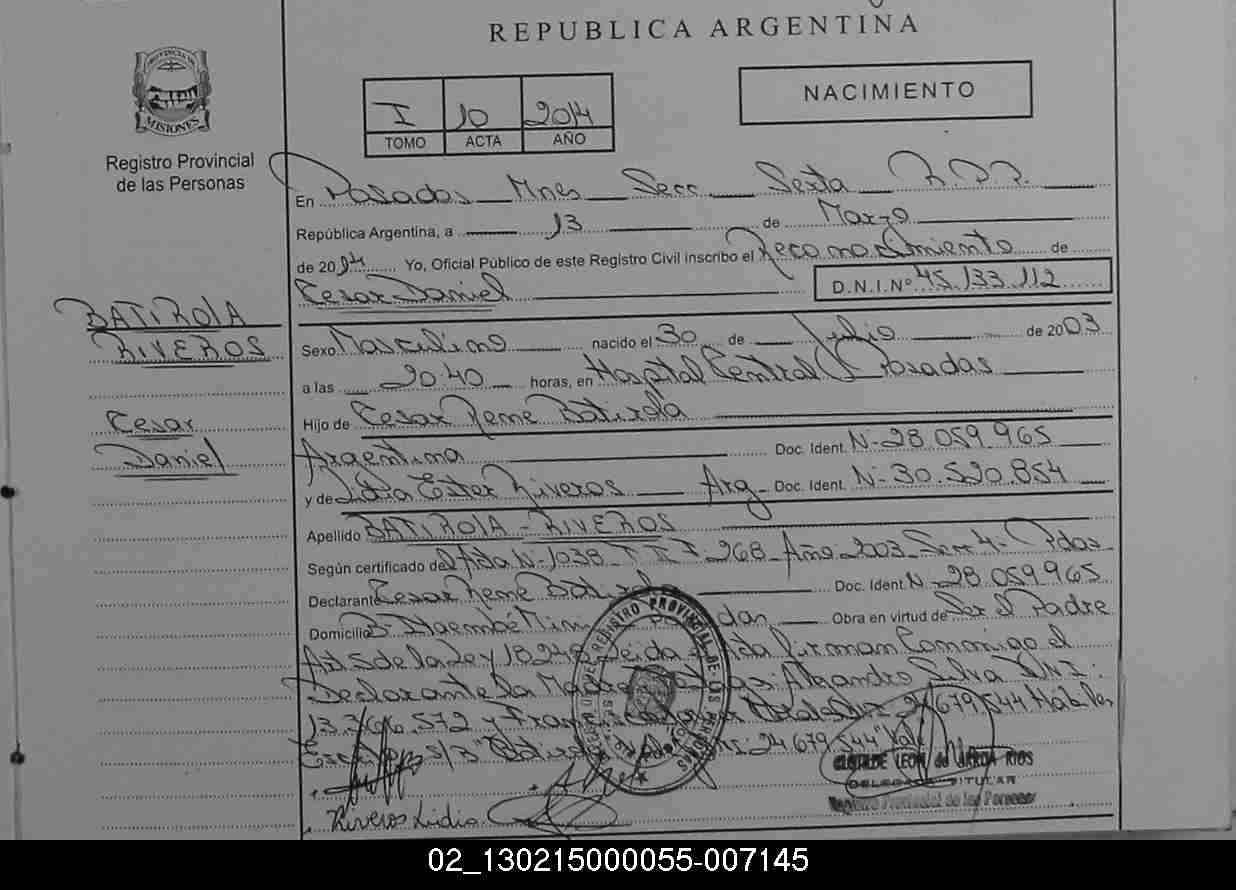 REPUBLICA ARGENTINA
PROVINCIA DE
MISIONES
Registro Provincial
de las Personas
I 10 2014
TOMO ACTA AÑO
NACIMIENTO
En Posadas Mnes Secc Sexta R.P.P.
República Argentina, a 13 de Marzo
de 2014 Yo, Oficial Público de este Registro Civil inscribo el Reconocimiento de
Cesar Daniel D.N.I.Nº 45.133.112
BATIROLA
RIVEROS
Cesar
Daniel
Sexo Masculino nacido el 30 de Julio de 2003
a las 20:40 horas, en Hospital Central Posadas
Hijo de Cesar Rene Batirola
Argentina Doc. Ident. N- 28.059.965
y de Lidia Ester Riveros Arg Doc. Ident. N- 30.520.854
Apellido BATIROLA - RIVEROS
Según certificado de Acta N-1038 T II F 268 Año 2003 Secc 4- Pdas
Declarante Cesar Rene Batirola Doc. Ident. N- 28.059.965
Domicilio B- Itaembé Mini Obra en virtud de Ser el Padre
Art 5 de la Ley 18248 Leida Acta firman Conmigo el
Declarante la Madre Alejandro Silva DNI:
13.366.572 y 24679544 Hábiles
S/B 24679544 Vale
REGISTRO PROVINCIAL DE LAS PERSONAS
Riveros Lidia
CLOTILDE LEON de ARRUA RIOS
DELEGADA TITULAR
Registro Provincial de las Personas
02_130215000055-007145